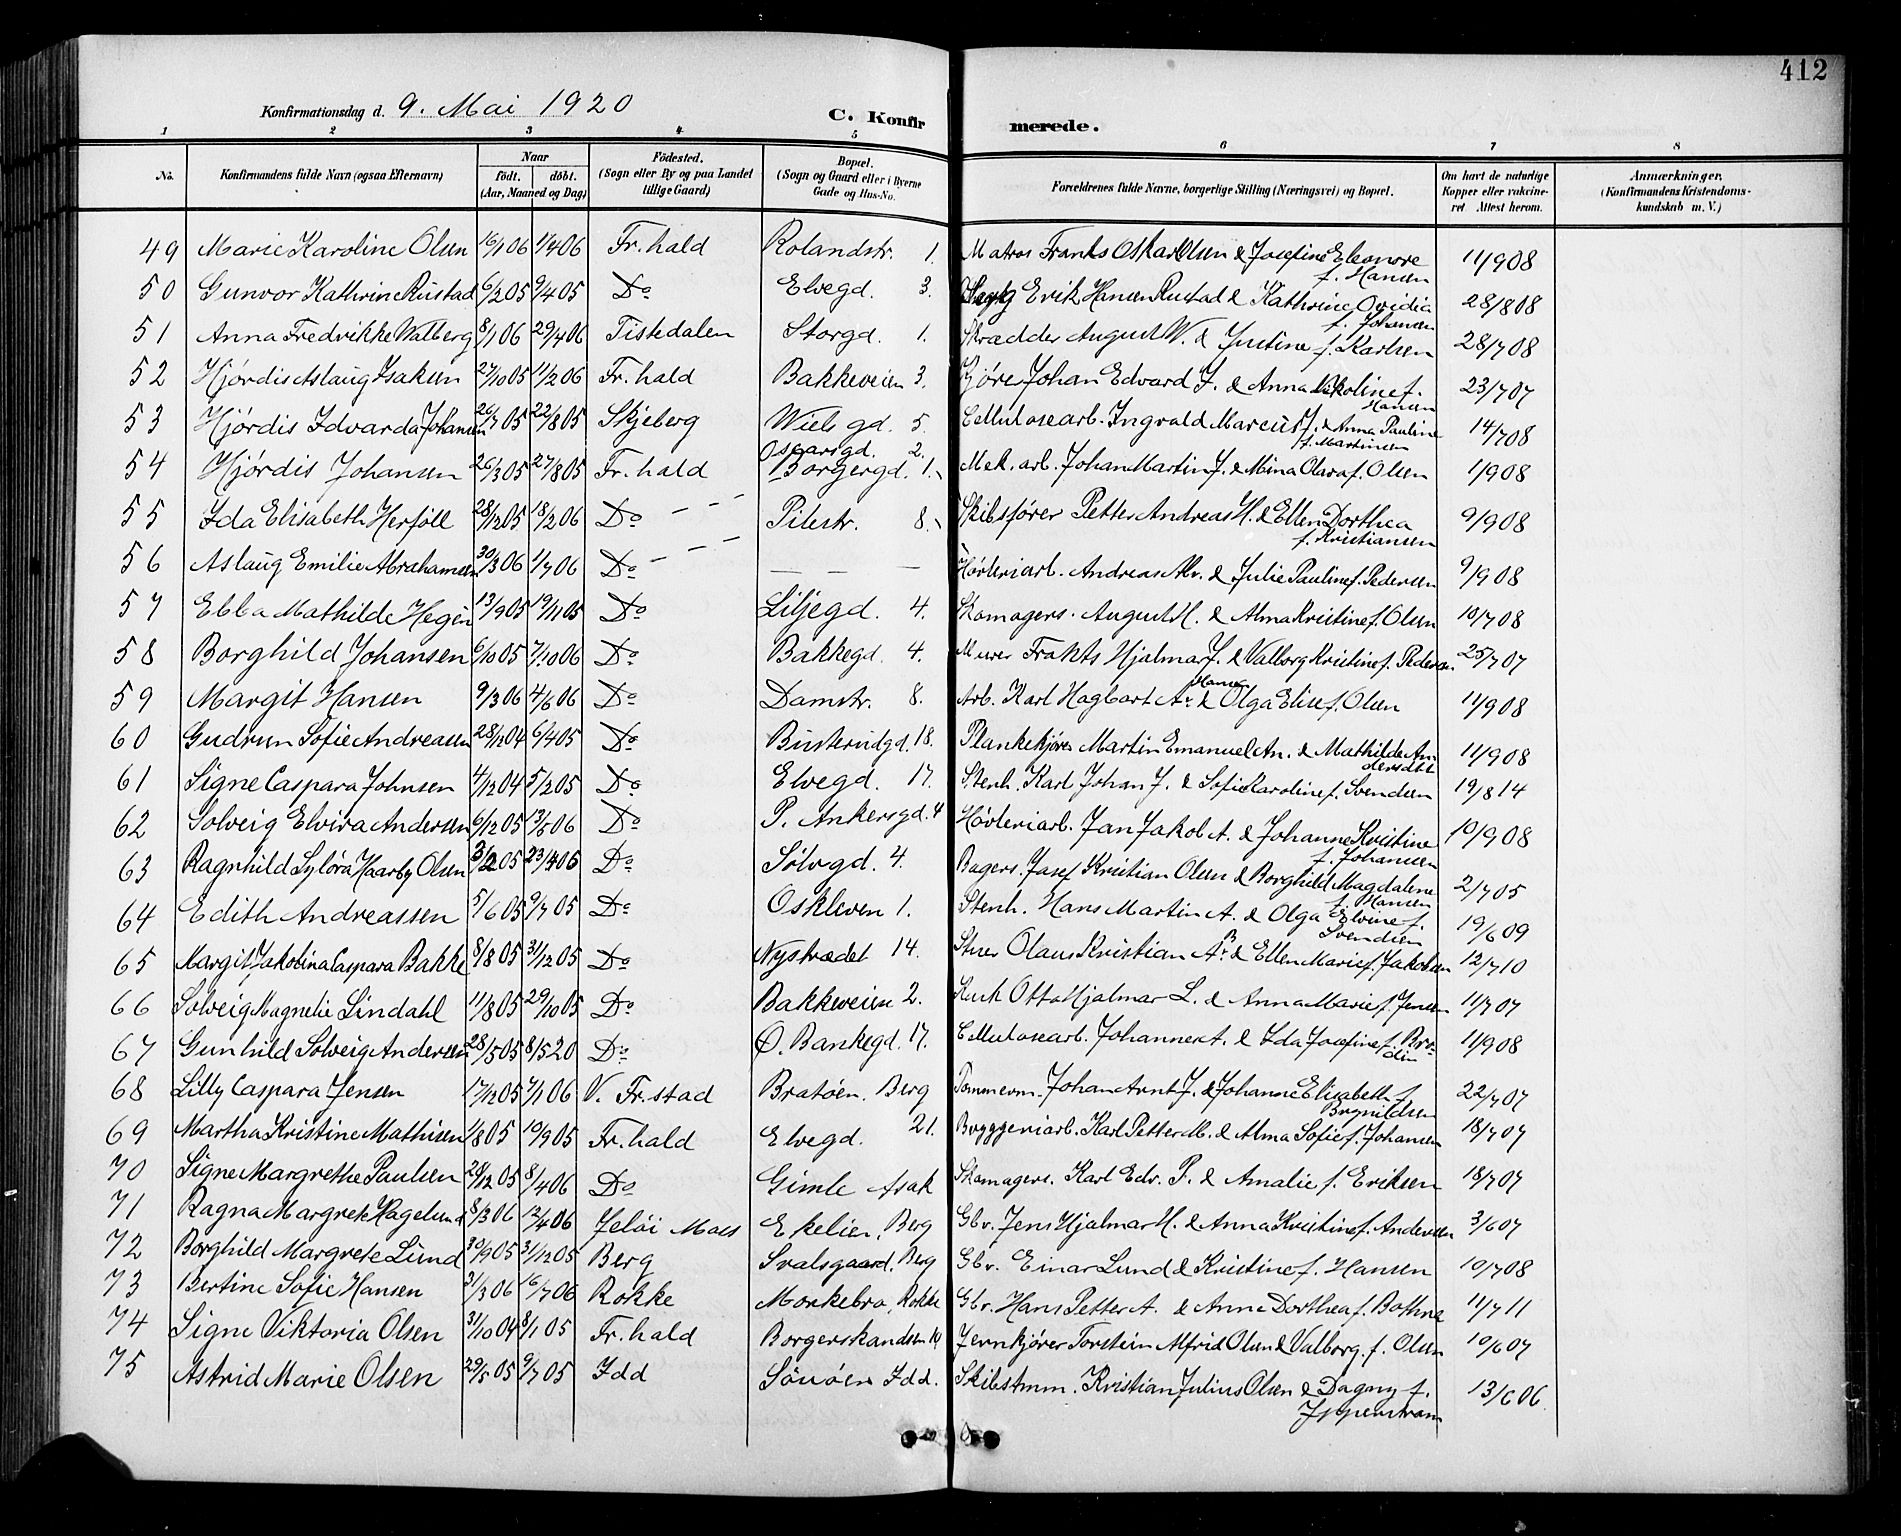 412
Konfirmationsdag d. 9. Mai 1920
C. Konfirmerede.
1 2 3 4 5 6 7 8
No. | Konfirmandens fulde Navn (ogsaa Efternavn) | Naar født. døbt. (Aar, Maaned og Dag) | Födested. (Sogn eller By og paa Landet tillige Gaard) | Bopæl. (Sogn og Gaard eller i Byerne Gade og Hus-No. | Forældrenes fulde Navne, borgerlige Stilling (Næringsvei) og Bopæl. | Om havt de naturlige Kopper eller vakcineret. Attest herom. | Anmærkninger, (Konfirmandens Kristendomskundskab m. V.)
49 Marie Karoline Olsen 16/1 06 1/4 06 Fr.hald Rolandstr. 1. Matros Frants Oskar Olsen & Josefine Eleonore f. Hansen 11/9 08
50 Gunvor Kathrine Rustad 6/2 05 9/4 05 Do Elvegd. 3. Erik Hansen Rustad & Kathrine Ovidia f. Johansen 28/8 08
51 Anna Fredrikke Walberg 8/1 06 29/4 06 Tistedalen Storgd. 1. Skrædder August W. & Justine f. Karlsen 28/7 08
52 Hjørdis Aslaug Isaksen 27/10 05 11/2 06 Fr.hald Bakkeveien 3. Kjører Johan Edvard I. & Anna Nikoline f. Hansen 23/7 07
53 Hjórdis Edvarda Johansen 26/7 05 22/8 05 Skjeberg Wiels gd. 5. Cellulosearb. Ingvald Marcus J. & Anna Pauline f. Martinsen 14/7 08
54 Hjórdis Johansen 26/3 05 27/8 05 Fr.hald Oscarsgd. 2. Borgergd. 1. Mek. arb. Johan Martin J. & Mina Olava f. Olsen 1/9 08
55 Ida Elisabeth Herföll 28/12 05 18/2 06 Do Pilestr. 8. Skibsfører Petter Andreas H. & Ellen Dorthea f. Kristiansen 9/9 08
56 Aslaug Emilie Abrahamsen 30/3 06 1/7 06 Do — — — Høvleriarb. Andreas Abr. & Julie Pauline f. Pedersen 9/9 08
57 Ebba Mathilde Hegin 13/9 05 19/11 05 Do Liljegd. 4. Skomagers. August H. & Alma Kristine f. Olsen 10/7 08
58 Borghild Johansen 6/10 05 7/10 06 Do Bakkegd. 4. Murer Frants Hjalmar J. & Valborg Kristine f. Pedersen 25/7 07
59 Margit Hansen 9/3 06 4/6 06 Do Damstr. 8. Arb. Karl Hagbart Hansen & Olga Elise f. Olsen 11/9 08
60 Gudrun Sofie Andreasen 28/12 04 6/4 05 Do Busterudgd. 18. Plankekjører Martin Emanuel An. & Mathilde Andersdtt 11/9 08
61 Signe Caspara Johnsen 4/12 04 5/2 05 Do Elvegd. 17. Stenh. Karl Johan J. & Sofie Karoline f. Svendsen 19/8 14
62 Solveig Elvira Andersen 6/12 05 13/5 06 Do P. Ankersgd. 4 Høvleriarb. Jan Jakob A. & Johanne Kristine f. Johansen 10/9 08
63 Ragnhild Sylóra Haarby Olsen 3/2 05 23/4 06 Do Sølvgd. 4. Bagers. Josef Kristian Olsen & Borghild Magdalene f. Hansen 2/7 05
64 Edith Andreassen 5/6 05 9/7 05 Do Oskleven 1. Stenh. Hans Martin A. & Olga Elvine f. Svendsen 19/6 09
65 Margit Jakobina Caspara Bakke 8/8 05 31/12 05 Do Nystrædet 14. Stuer Olaus Kristian B. & Ellen Marie f. Jakobsen 12/7 10
66 Solveig Magnelie Lindahl 11/8 05 29/10 05 Do Bakkeveien 2. Kusk Otto Hjalmar L. & Anna Marie f. Jensen 11/7 07
67 Gunhild Solveig Andersen 28/5 05 8/5 20 Do Ø. Bankegd. 17. Cellulosearb. Johannes A. & Ida Josefine f. Brodin 11/9 08
68 Lilly Caspara Jensen 17/12 05 7/1 06 V. Fr.stad Bratøen, Berg Tømmerm. Johan Arnt J. & Johanne Elisabeth f. Brynildsen 22/7 07
69 Martha Kristine Mathisen 1/8 05 10/9 05 Fr.hald Elvegd. 21. Bryggeriarb. Karl Petter M. & Alma Sofie f. Johansen 18/7 07
70 Signe Margrethe Paulsen 28/12 05 8/4 06 Do Gimle Asak Skomagers. Karl Edv. P. & Amalie f. Eriksen 18/7 07
71 Ragna Margrete Hagelund 8/3 06 12/4 06 Jelöi Moss Ekelien, Berg Gbr. Jens Hjalmar H. & Anna Kristine f. Andersen 3/6 07
72 Borghild Margrete Lund 30/9 05 31/12 05 Berg Svalsgaard, Berg Gbr. Einar Lund & Kristine f. Hansen 10/7 08
73 Bertine Sofie Hansen 31/3 06 16/7 06 Rokke Monkebro, Rokke Gbr. Hans Petter A. & Anne Dorthea f. Bothne 11/7 11
74 Signe Viktoria Olsen 31/10 04 8/1 05 Fr.hald Borgerskandsen 10 Jernkjører Torstein Alfrid Olsen & Valborg. f. Olsen 10/6 07
75 Astrid Marie Olsen 29/5 05 9/7 05 Idd Sönöen Idd. Skibstmm. Kristian Julius Olsen & Dagny f. 13/6 06.